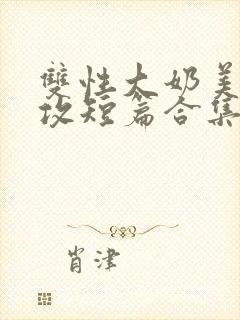 雙性大奶美
攻短篇合集
肖津